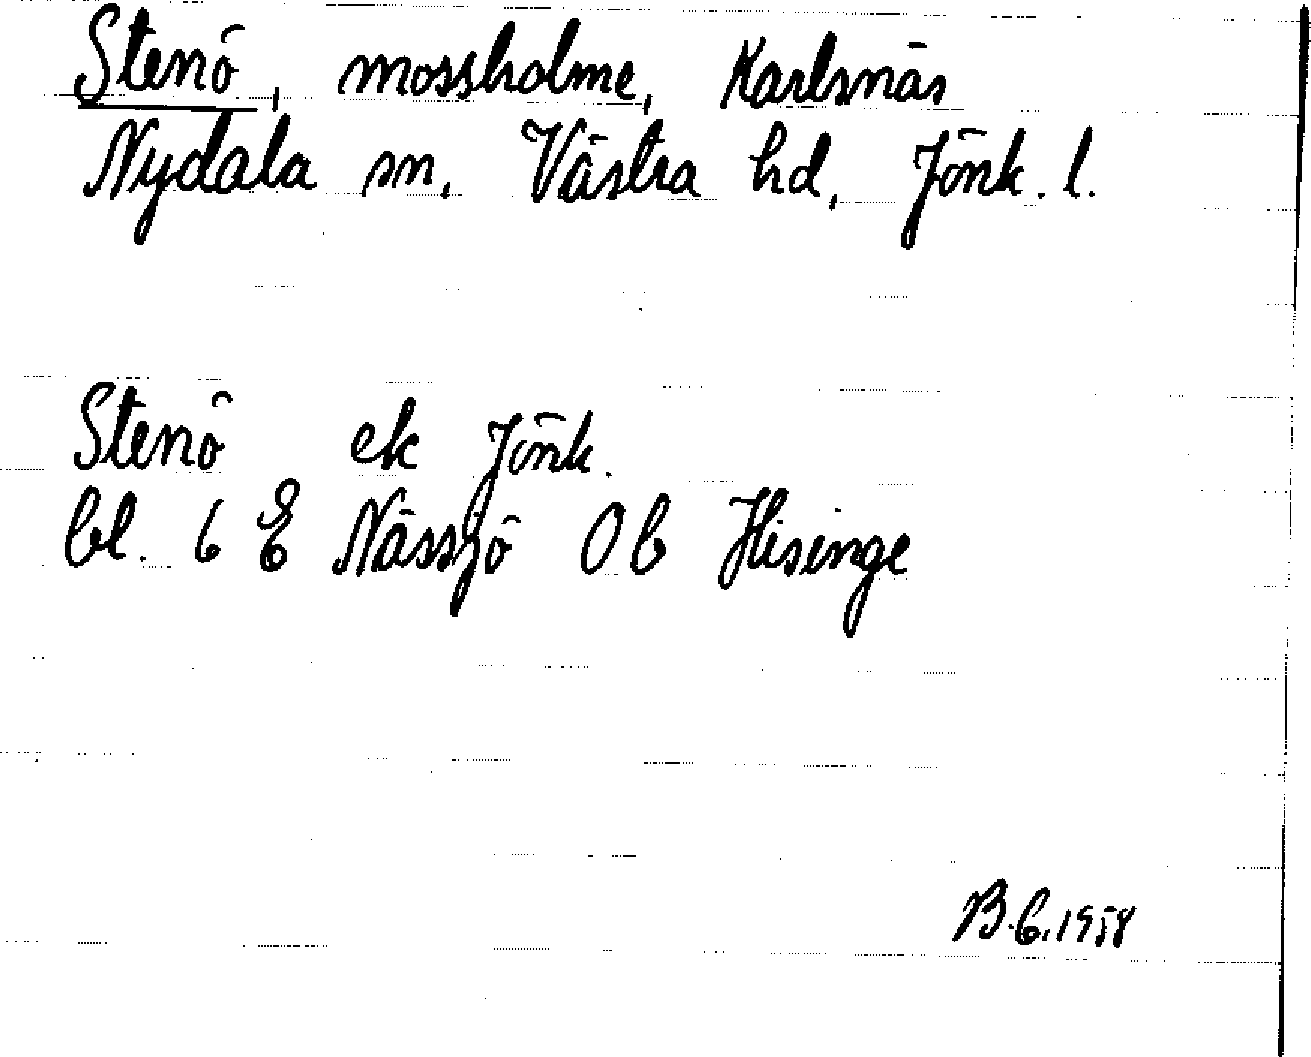 Stenö, mossholme, Karlsnäs
Nydala sn. Västra hd, Jönk. l.
Stenö ek Jönk.
bl. 6 E Nässjö Ob Hisinge
B.E.1958